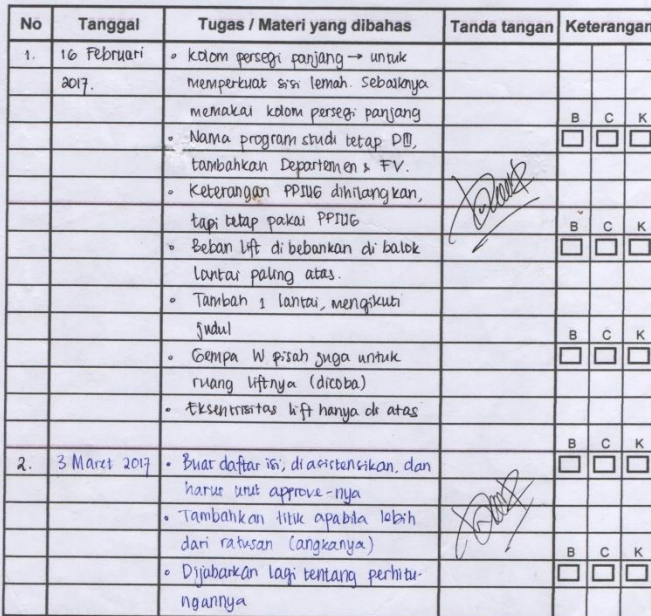 No Tanggal Tugas / Materi yang dibahas Tanda tangan Keterangan
1. 16 Februari • Kolom persegi panjang → untuk
2017. memperkuat sisi lemah. Sebaiknya
memakai kolom persegi panjang B C K
• Nama program studi tetap DIII,
tambahkan Departemen & FV.
• Keterangan PPIUG dihilangkan,
tapi tetap pakai PPIUG B C K
• Beban lift di bebankan di balok
lantai paling atas.
• Tambah 1 lantai, mengikuti
judul B C K
• Gempa W pisah juga untuk
ruang liftnya (dicoba)
• Eksentrisitas lift hanya di atas
B C K
2. 3 Maret 2017 • Buat daftar isi, diasistensikan, dan
harus urut approve-nya
• Tambahkan titik apabila lebih
dari ratusan (angkanya) B C K
• Dijabarkan lagi tentang perhitu-
ngannya